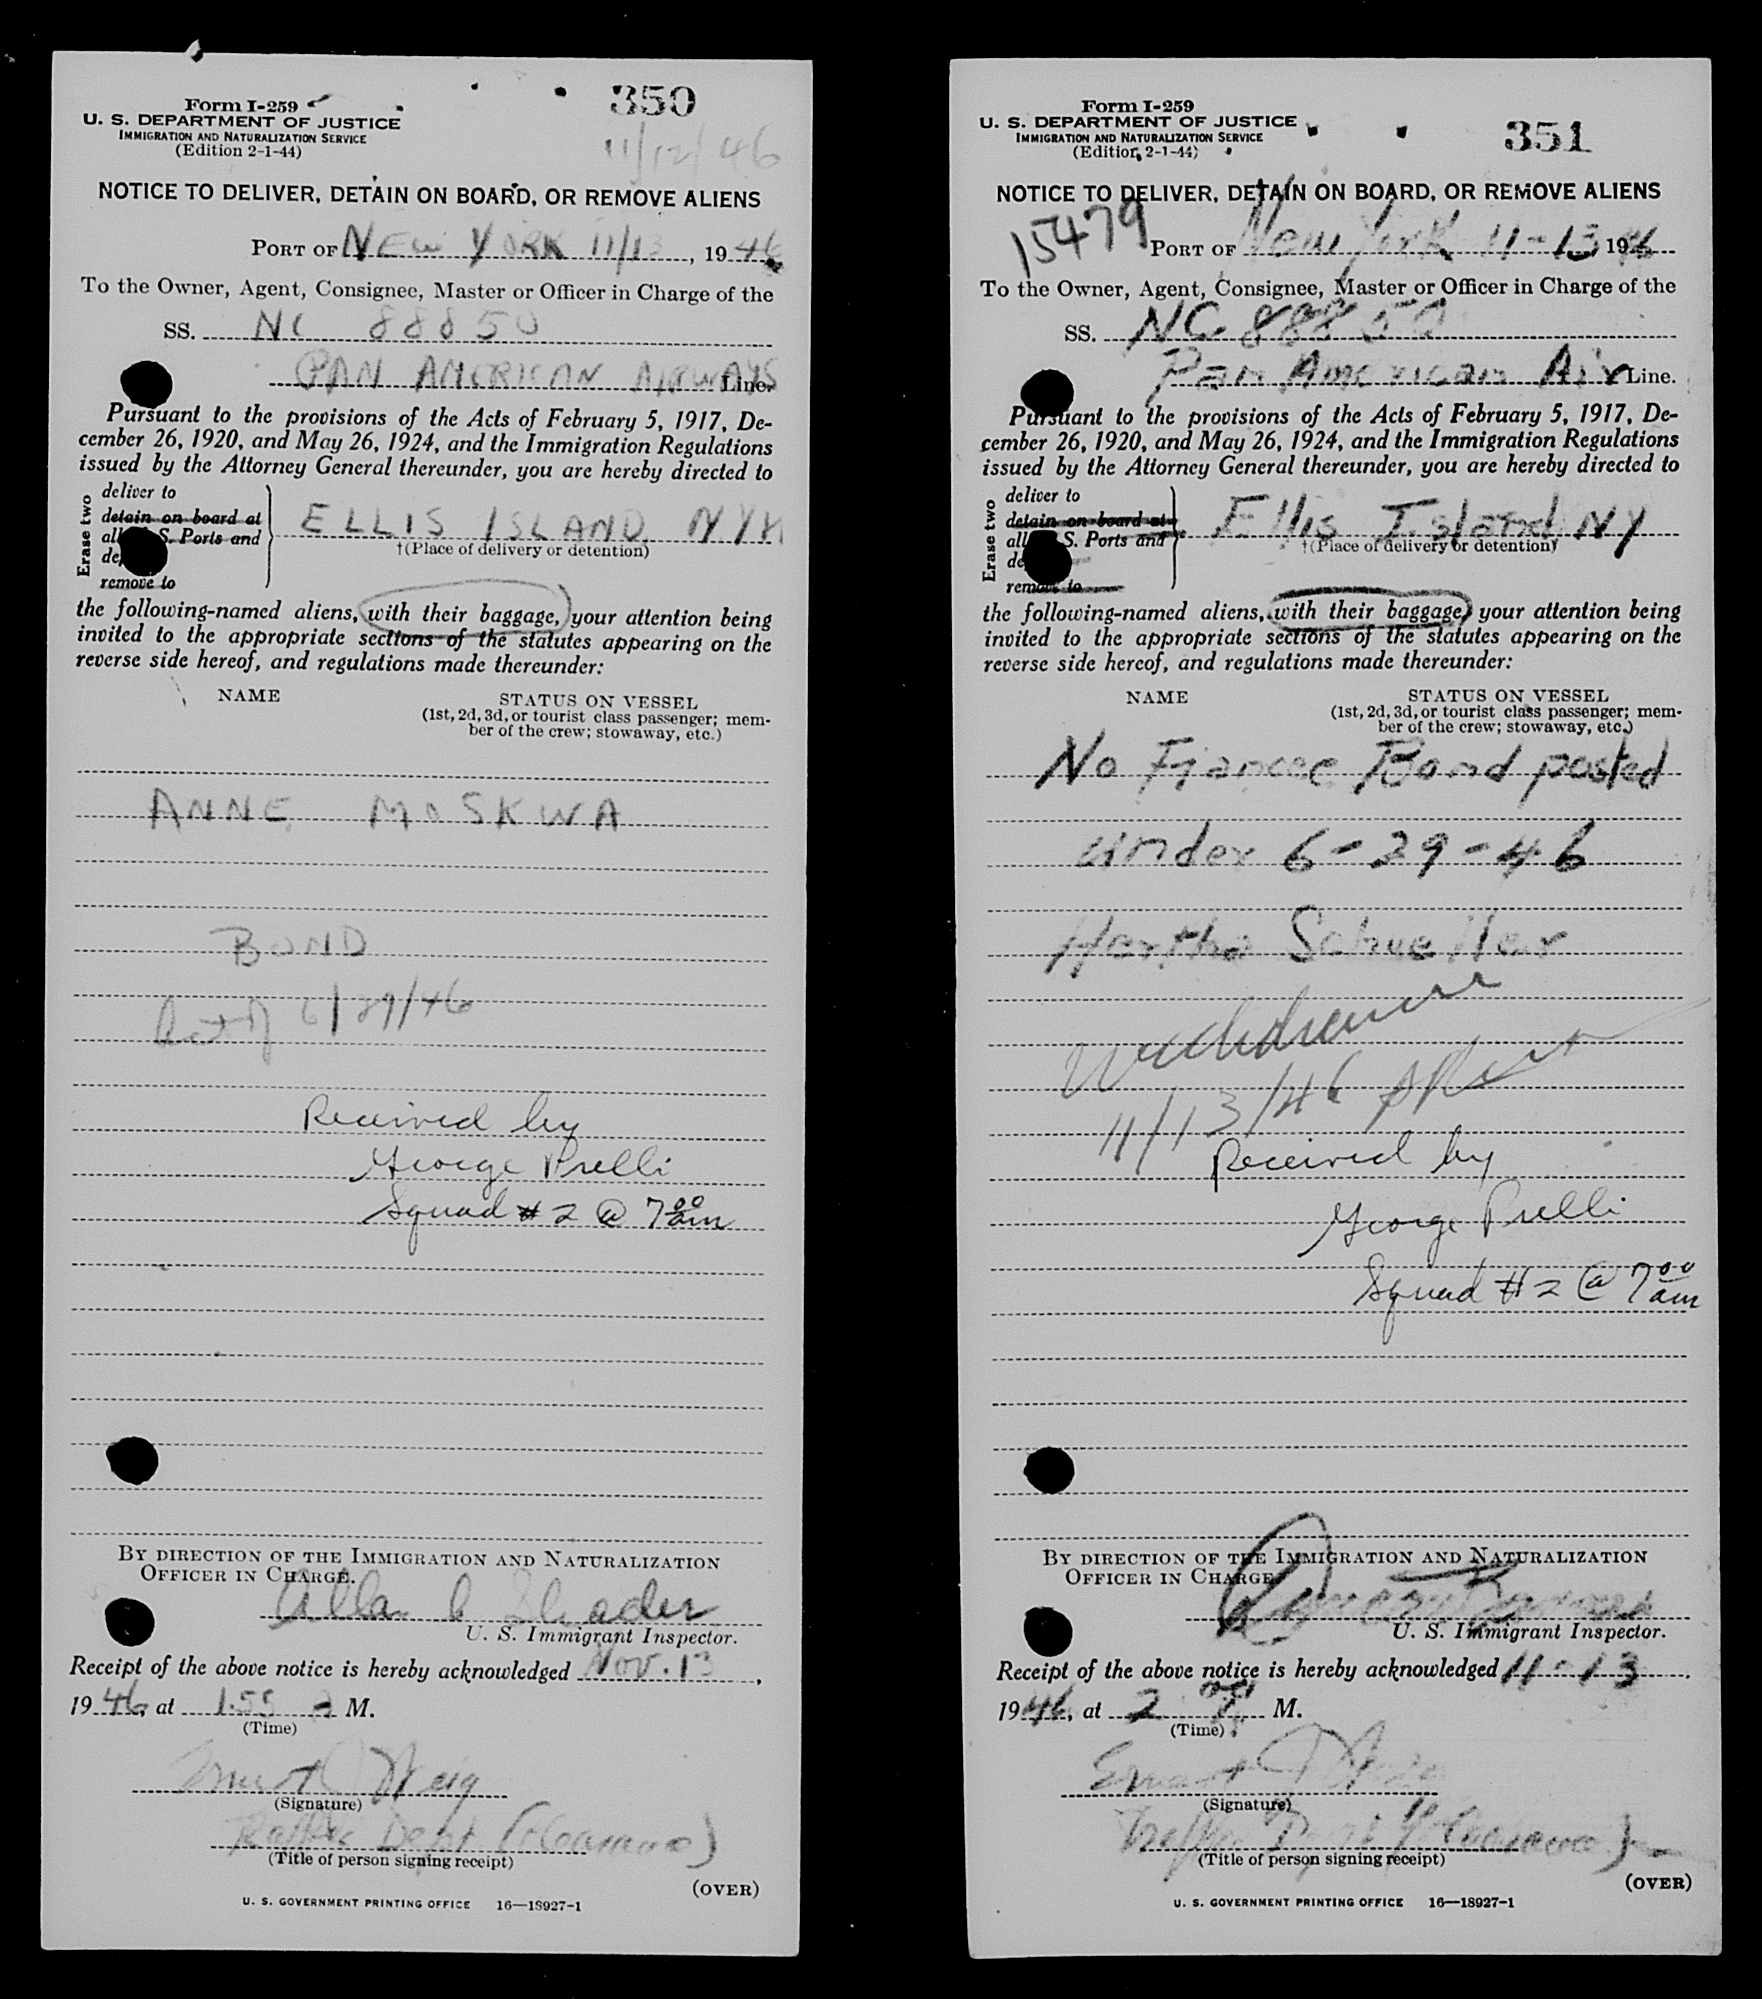 Form I-259
U. S. DEPARTMENT OF JUSTICE
IMMIGRATION AND NATURALIZATION SERVICE
(Edition 2-1-44)
350
11/12/46
NOTICE TO DELIVER, DETAIN ON BOARD, OR REMOVE ALIENS
PORT OF NEW YORK 11/13, 1946
To the Owner, Agent, Consignee, Master or Officer in Charge of the
SS. NC 88850
PAN AMERICAN AIRWAYS Line.
Pursuant to the provisions of the Acts of February 5, 1917, De-
cember 26, 1920, and May 26, 1924, and the Immigration Regulations
issued by the Attorney General thereunder, you are hereby directed to
Erase two
deliver to
detain on board at
all S. Ports and
remove to
ELLIS ISLAND NYH
†(Place of delivery or detention)
the following-named aliens, with their baggage, your attention being
invited to the appropriate sections of the statutes appearing on the
reverse side hereof, and regulations made thereunder:
NAME
STATUS ON VESSEL
(1st, 2d, 3d, or tourist class passenger; mem-
ber of the crew; stowaway, etc.)
ANNE MOSKWA
BOND
Act of 6/29/46
Received by
George Prelli
Squad # 2 @ 7 00 am
BY DIRECTION OF THE IMMIGRATION AND NATURALIZATION
OFFICER IN CHARGE.
Allan C Shader
U. S. Immigrant Inspector.
Receipt of the above notice is hereby acknowledged Nov. 13,
1946, at 1.55 a M.
(Time)
(Signature)
Traffic Dept (Clearance)
(Title of person signing receipt)
(OVER)
U. S. GOVERNMENT PRINTING OFFICE 16—18927-1
Form I-259
U. S. DEPARTMENT OF JUSTICE
IMMIGRATION AND NATURALIZATION SERVICE
(Edition 2-1-44)
351
NOTICE TO DELIVER, DETAIN ON BOARD, OR REMOVE ALIENS
15479
PORT OF New York 11-13 1946
To the Owner, Agent, Consignee, Master or Officer in Charge of the
SS. NC 88850
Pan American Air Line.
Pursuant to the provisions of the Acts of February 5, 1917, De-
cember 26, 1920, and May 26, 1924, and the Immigration Regulations
issued by the Attorney General thereunder, you are hereby directed to
Erase two
deliver to
detain on board at
all S. Ports and
remove to
Ellis Island NY
†(Place of delivery or detention)
the following-named aliens, with their baggage, your attention being
invited to the appropriate sections of the statutes appearing on the
reverse side hereof, and regulations made thereunder:
NAME
STATUS ON VESSEL
(1st, 2d, 3d, or tourist class passenger; mem-
ber of the crew; stowaway, etc.)
No Fiancee Bond posted
under 6-29-46
Hertha Schueller
Withdrawn
11/13/46
Received by
George Prelli
Squad # 2 @ 7 00 am
BY DIRECTION OF THE IMMIGRATION AND NATURALIZATION
OFFICER IN CHARGE
U. S. Immigrant Inspector.
Receipt of the above notice is hereby acknowledged 11-13.
1946, at 2 M.
(Time)
(Signature)
Traffic Dept (Clearance)
(Title of person signing receipt)
(OVER)
U. S. GOVERNMENT PRINTING OFFICE 16—18927-1